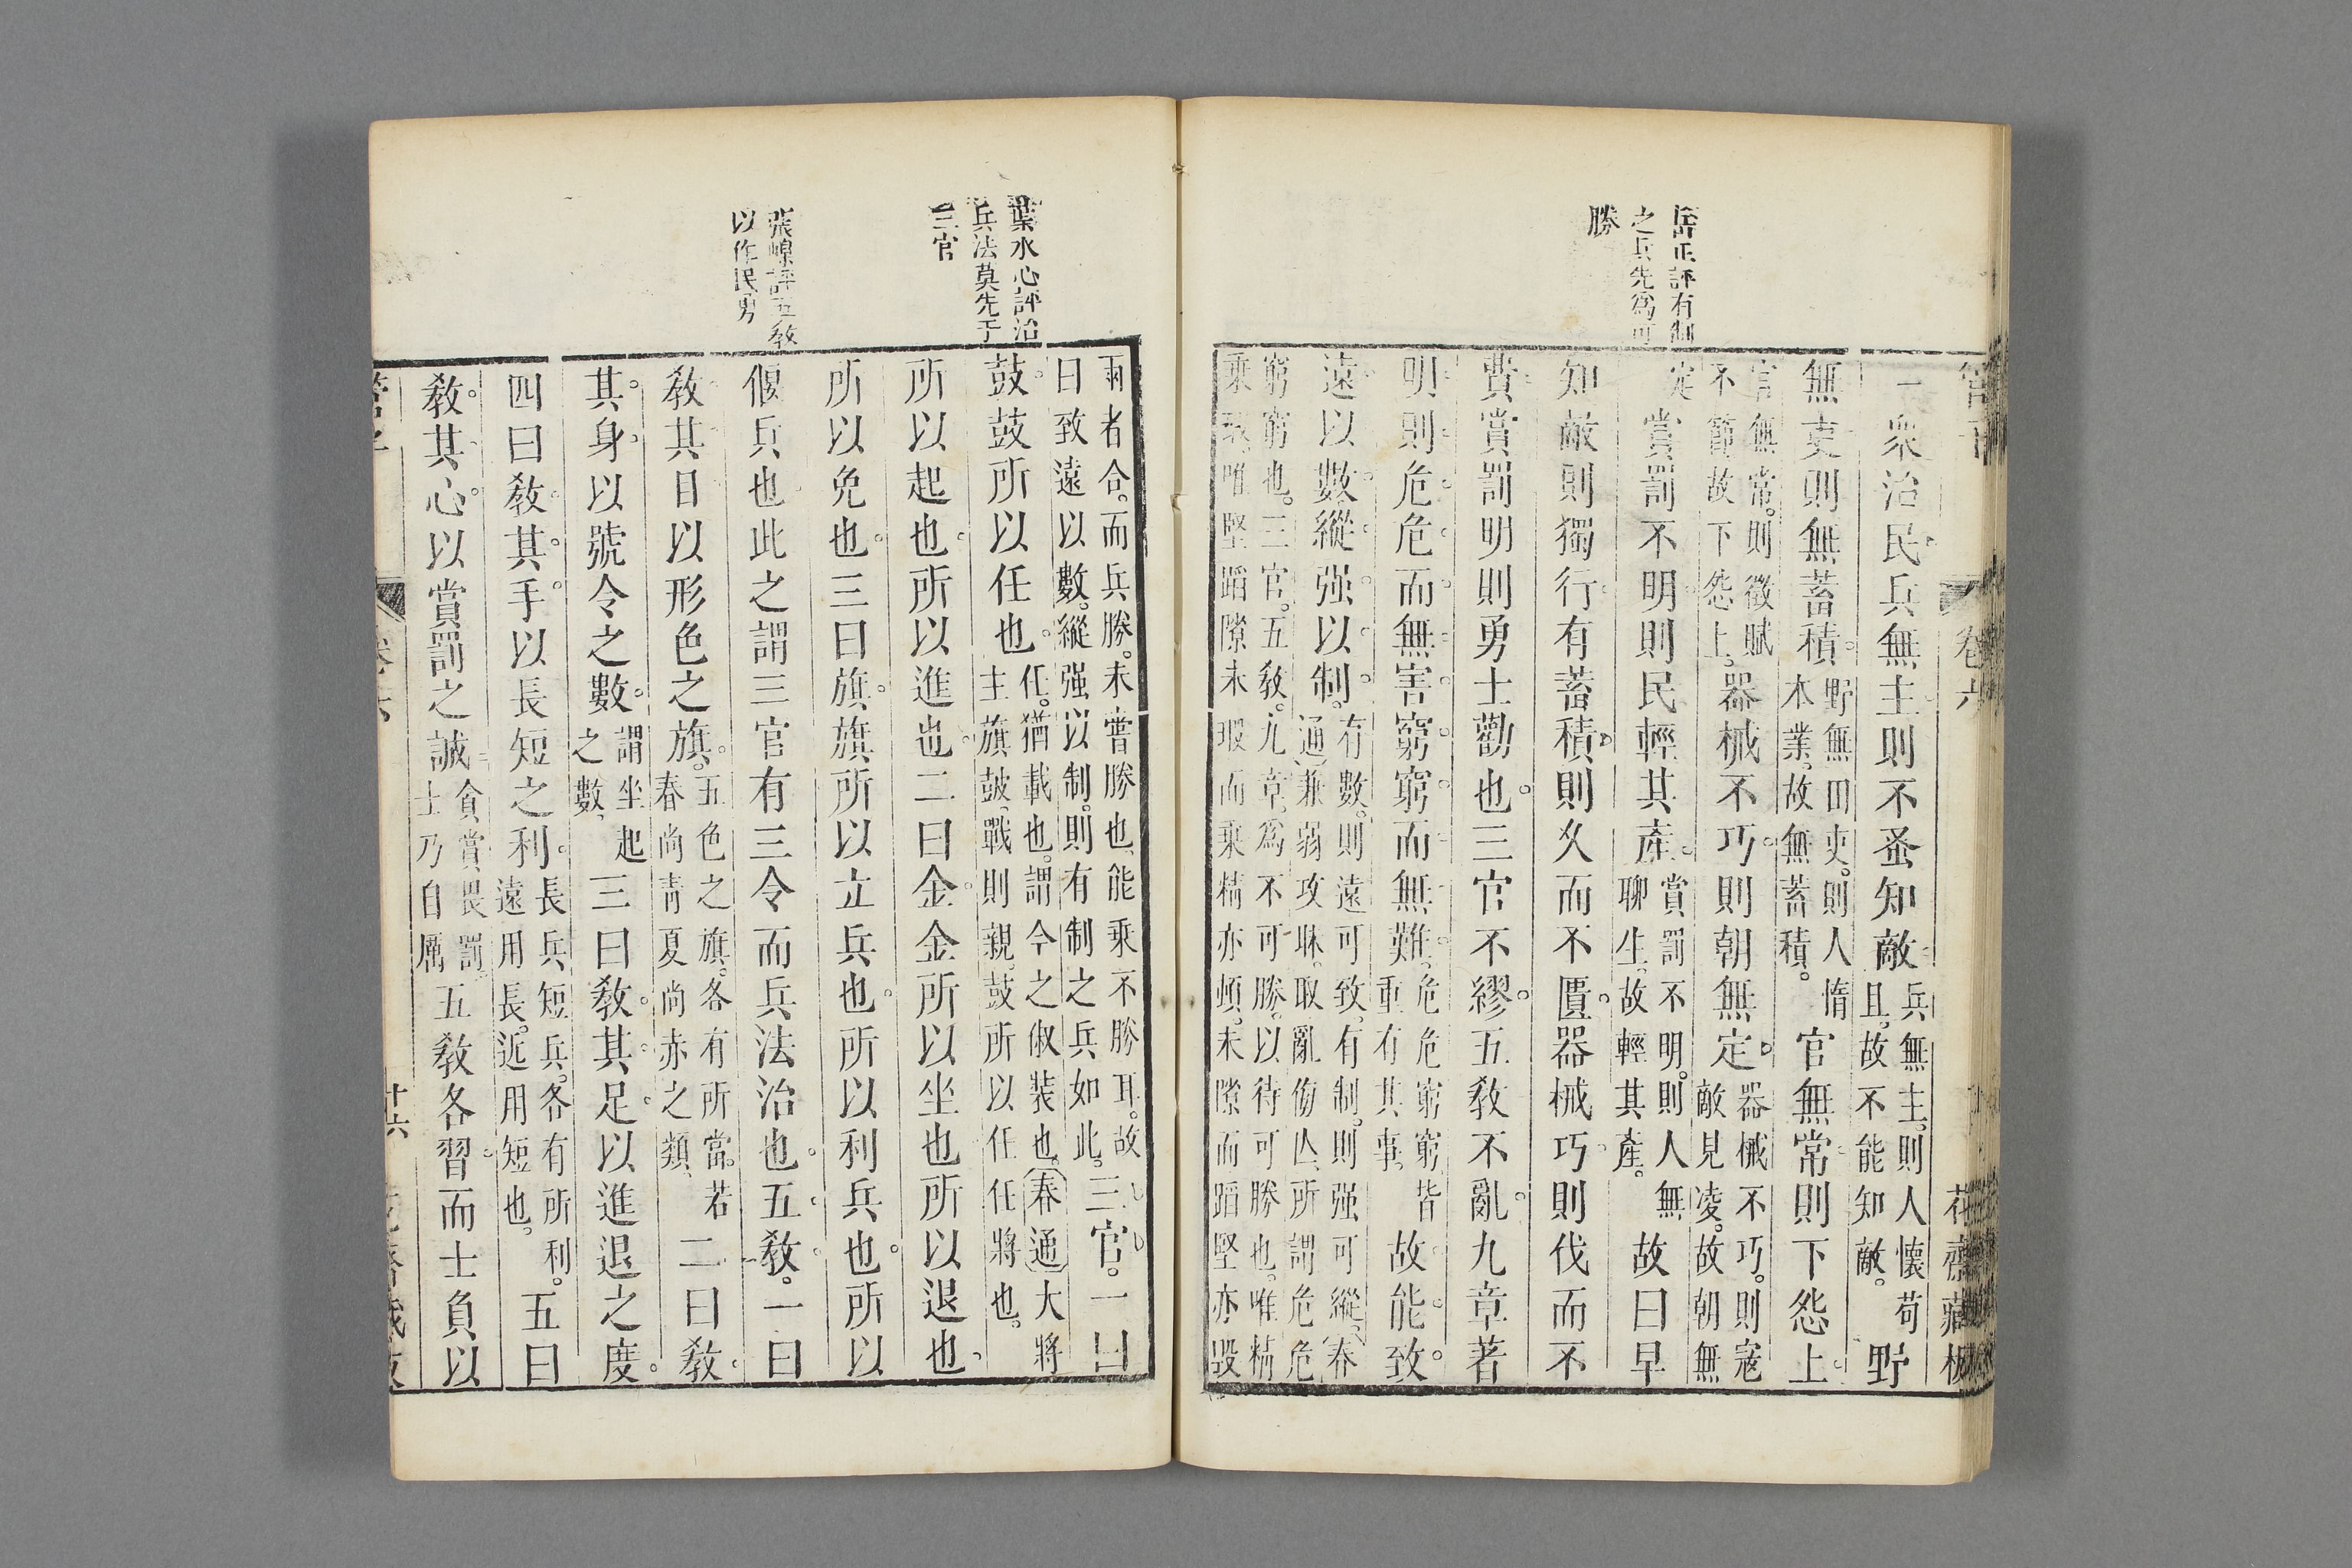 岳正評有制
之兵先爲可
勝
管子 卷六 花齋藏板
一衆治民兵無主則不蚤知敵兵無主則人懷苟且故不能知敵。野
無吏則無蓄積野無田吏。則人惰本業。故無蓄積。官無常則下怨上
官無常。則徵賦不節故下怨上。器械不巧則朝無定器械不巧。則寇敵見凌。故朝無
定賞罰不明則民輕其產賞罰不明。則人無聊生。故輕其產。故曰早
知敵則獨行有蓄積則久而不匱器械巧則伐而不
費賞罰明則勇士勸也三官不繆五敎不亂九章著
明則危危而無害窮窮而無難危危窮窮皆重有其事。故能致
遠以數縱强以制有數。則遠可致。有制。則强可縱。春通兼弱攻昧。取亂侮亡、所謂危危
窮窮也。三官。五敎。九章。爲不可勝。以待可勝也。唯精乘瑕、唯堅蹈隙未瑕而乘精亦頓。未隙而蹈堅亦毀
葉水心評治
兵法莫先于
三官
張嵲評五敎
以作民勇
雨者合。而兵勝。未嘗勝也、能乘不勝耳。故曰致遠以數。縱强以制。則有制之兵如此。三官。一曰
鼓鼓所以任也任。猶載也。謂令之俶裝也。春通大將主旗鼓、戰則親。鼓所以任任將也。
所以起也所以進也二曰金金所以坐也所以退也
所以免也三曰旗旗所以立兵也所以利兵也所以
偃兵也此之謂三官有三令而兵法治也五敎。一曰
敎其目以形色之旗。五色之旗。各有所當。若春尚靑夏尚赤之類二曰敎
其身以號令之數謂坐起之數、三曰敎其足以進退之度
四曰敎其手以長短之利長兵短兵。各有所利。遠用長。近用短也。五曰
敎其心以賞罰之誠貪賞畏罰。士乃自厲五敎各習而士負以
管子 卷六 十六 花齋藏板